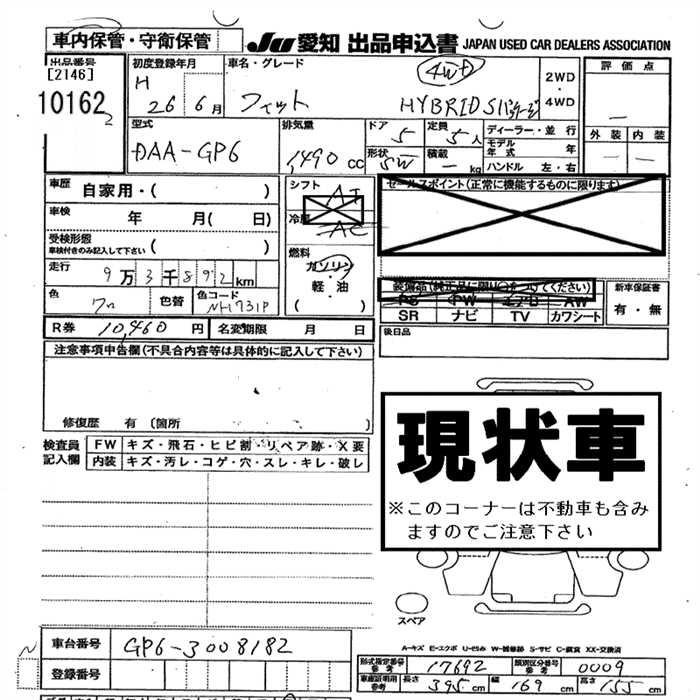 車内保管・守衛保管
JU 愛知 出品申込書 JAPAN USED CAR DEALERS ASSOCIATION
出品番号
[2146]
10162
2
初度登録年月
H
26 6月
車名・グレード
フィット
4WD
HYBRID Sパッケージ
2WD
・
4WD
評価点
—
外装 内装
— —
型式
DAA-GP6
排気量
1,490 cc
ドア 5
形状 SW
定員 5人
積載 — kg
ディーラー・並行
モデル年式 年
ハンドル 左・右
車歴 自家用・( )
車検 年 月( 日)
受検形態
車検付きのみ記入して下さい ( )
走行 9万3千892km
色 色替 色コード
NH731P
シフト
AT
冷房
AC
燃料
ガソリン
・
軽・油
( )
セールスポイント(正常に機能するものに限ります)
装備品(純正品に限り○をつけてください)
PS PW エアB AW
SR ナビ TV カワシート
新車保証書
有・無
後日品
R券 10,460 円 名変期限 月 日
注意事項申告欄(不具合内容等は具体的に記入して下さい)
修復歴 有〔箇所
検査員
記入欄
FW キズ・飛石・ヒビ割・リペア跡・X要
内装 キズ・汚レ・コゲ・穴・スレ・キレ・破レ
現状車
※このコーナーは不動車も含み
ますのでご注意下さい
スペア
A-キズ E-エクボ U-凹み W-補修跡 S-サビ C-腐食 XX-交換済
車台番号 GP6-3008182
登録番号
N
形式指定番号
参考 17692
類別区分番号
参考 0009
車庫証明用
参考 長さ 395cm 幅 169cm 高さ 155cm